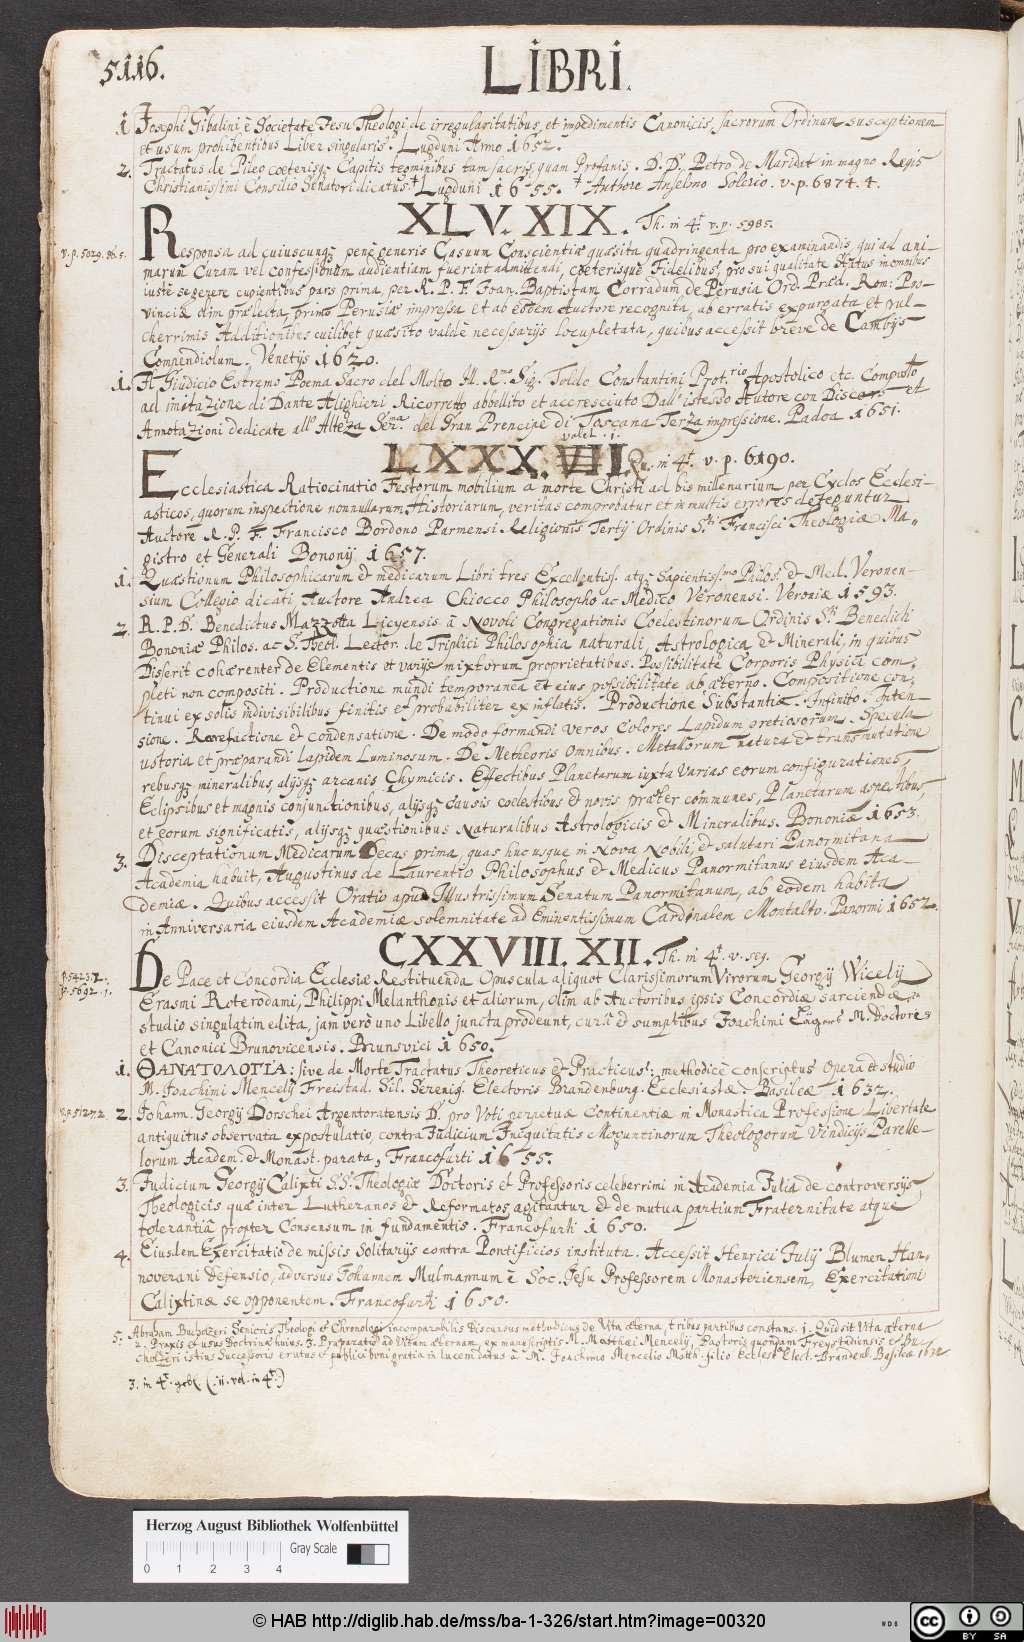 5116.
LIBRI.
1 Josephi Gibalini è Societate Jesu Theologi de irregularitatibus, et impedimentis Canonicis sacrorum Ordinum susceptionem
et usum prohibentibus Liber singularis. Lugduni Anno 1652.
2. Tractatus de Pileo coeterisq; Capitis tegminibus tam sacris, quam Profanis. D. D. Petro de Maridat in magno Regis
Christianissimi Consilio Senatori dicatus. † Lugduni 1655. † Authore Anselmo Solerio. v. p. 6874. 4.
XLV. XIX. Th. in 4t. v. p. 5985.
v. p. 5029. 36. 5.
Responsa ad cuiuscunq; penè generis Casuum Conscientiæ quæsita quadringenta, pro examinandis, qui ad ani-
marum Curam vel confessionum audientiam fuerint admittendi, cæterisque Fidelibus, pro sui qualitate status in omnibus
iustè se gerere cupientibus pars prima, per R. P. F. Joan. Baptistam Corradum de Perusia Ord. Præd. Rom: Pro-
vinciæ olim prælecta, primo Perusiæ impressa et ab eodem Auctore recognita, ab erratis expurgata et pul-
cherrimis Additionibus cuilibet quæsito valdè necessarijs locupletata, quibus accessit breve de Cambijs
Compendiolum. Venetijs 1620.
1. Il Giudicio Estremo Poema Sacro del Molto Ill. Rmo. Sig. Toldo Constantini Prot.rio Apostolico etc. Composto
ad imitazione di Dante Alighieri Ricorretto abbellito et accresciuto Dall' istesso Autore con Discorsi et
Annotazioni dedicate all' Alteza Ser.ma del Gran Prencipe di Toscana Terza impressione. Padoa 1651.
LXXX. VII. Qu. in 4t. v. p. 6190.
Ecclesiastica Ratiocinatio Festorum mobilium a morte Christi ad bis millenarium per Cyclos Ecclesi-
asticos, quorum inspectione nonnullarum Historiarum, veritas comprobatur et in multis errores deteguntur
Auctore R. P. F. Francisco Bordono Parmensi Religionis Tertij Ordinis S.ti Francisci Theologiæ Ma-
gistro et Generali Bononij 1657.
1. Quæstionum Philosophicarum & medicarum Libri tres Excellentiss. atq; Sapientiss.mo Philos. & Med. Veronen-
sium Collegio dicati, Auctore Andrea Chiocco Philosopho ac Medico Veronensi. Veronæ 1593.
2. R. P. D. Benedictus Mazzotta Licyensis à Novoli Congregationis Coelestinorum Ordinis S.ti Benedicti
Bononiæ Philos. ac S. Theol. Lector. de Triplici Philosophia naturali, Astrologica & Minerali, in quibus
Disserit cohærenter de Elementis et varijs mixtorum proprietatibus. Possibilitate Corporis Physici com-
pleti non compositi. Productione mundi temporanea et eius possibilitate ab æterno. Compositione con-
tinui ex solis indivisibilibus finitis et probabiliter ex inflatis. Productione Substantiæ. Infinito. Inten-
sione. Rarefactione et condensatione. De modo formandi veros Colores Lapidum pretiosorum. Specula
ustoria et præparandi Lapidem Luminosum. De Metheoris omnibus. Metallorum natura & transmutatione
rebusq; mineralibus, alijsq; arcanis Chymicis. Effectibus Planetarum iuxta varias eorum configurationes,
Eclipsibus et magnis conjunctionibus, alijsq; causis coelestibus & novis præter communes, Planetarum aspectibus,
et eorum significatis, alijsq; quæstionibus Naturalibus Astrologicis & Mineralibus. Bononiæ 1653.
3. Disceptationum Medicarum Decas prima, quas huc usque in Nova Nobili, & salutari Panormitana
Academia habuit, Augustinus de Laurentio Philosophus & Medicus Panormitanus eiusdem Aca-
demiæ. Quibus accessit Oratio apud Illustrissimum Senatum Panormitanum, ab eodem habita
in Anniversaria eiusdem Academiæ solemnitate ad Eminentissimum Cardinalem Montalto. Panormi 1652.
CXXVIII. XII. Th. in 4t. v. seq.
p. 5423. 2.
p. 5692. 1.
De Pace et Concordia Ecclesiæ Restituenda Opuscula aliquot Clarissimorum Virorum Georgij Wicelij
Erasmi Roterodami, Philippi Melanthonis et aliorum, olim ab Auctoribus ipsis Concordiæ sarciendæ
studio singulatim edita, jam verò uno Libello juncta prodeunt, curâ & sumptibus Joachimi M. Doctoris
et Canonici Brunovicensis. Brunsvici 1650.
1. ΘΑΝΑΤΟΛΟΓΙΑ: sive de Morte Tractatus Theoreticus & Practicus: methodicè conscriptus Opera et studio
M. Joachimi Mencelij Freistad. Sil. Serenis. Electoris Brandenburg. Ecclesiastæ. Basileæ 1632.
v. p. 5127. 2.
2. Johann. Georgij Dorschei Argentoratensis D. pro Voti perpetuæ Continentiæ in Monastica Professione Libertate
antiquitus observata expostulatio, contra Judicium Iniquitatis Moguntinorum Theologorum Vindicijs Parelle-
lorum Academ. & Monast. parata. Francofurti 1655.
3. Judicium Georgij Calixti S.S. Theologiæ Doctoris et Professoris celeberrimi in Academia Julia de controversijs
Theologicis quæ inter Lutheranos & Reformatos agitantur et de mutua partium Fraternitate atque
tolerantiâ propter Consensum in fundamentis. Francofurti 1650.
4. Eiusdem Exercitatio de missis Solitarijs contra Pontificios instituta. Accessit Henrici Julij Blumen Han-
noverani Defensio, adversus Johannem Mulmannum è Soc. Jesu Professorem Monasteriensem, Exercitationi
Calixtinæ se opponentem. Francofurti 1650.
5. Abraham Buchozeri Senioris Theologi & Chronologi incomparabilis Discursus methodicus de Vita æterna, tribus partibus constans. 1. Quid sit Vita æterna
2. Praxis et usus Doctrinæ huius. 3. Præparatio ad Vitam æternam, ex manuscriptis M. Matthæi Mencelij, Pastoris quondam Freystadiensis et Bu-
cholzeri istius Successoris erutus & publici boni gratia in lucem datus à M. Joachimo Mencelio Matth. filio Eccles. Elect. Brandenb. Basileæ 1632
3. in 4t. gebl. (11. vol. in 4t.)
Herzog August Bibliothek Wolfenbüttel
Gray Scale
0 1 2 3 4
© HAB http://diglib.hab.de/mss/ba-1-326/start.htm?image=00320
WDB
cc BY SA